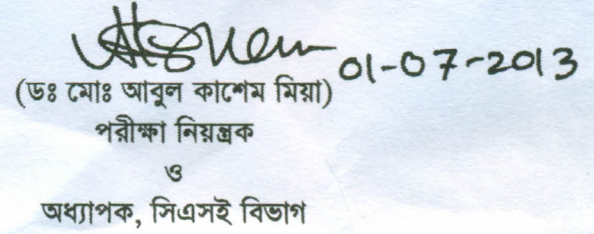 01-07-2013
(ডঃ মোঃ আবুল কাশেম মিয়া)
পরীক্ষা নিয়ন্ত্রক
ও
অধ্যাপক, সিএসই বিভাগ